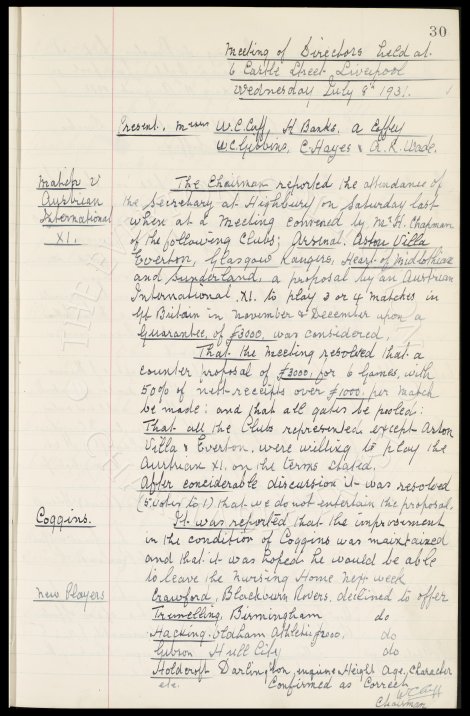 30
Meeting of Directors held at
6 Castle Street Liverpool
Wednesday July 8th 1931.
Present. Messrs W.C. Cuff, H Banks, A Coffey
W.C. Gibbins, E Hayes & A. R. Wade.
Match v
Austrian
International
XI.
The Chairman reported the attendance of
the Secretary at Highbury on Saturday last
when at a Meeting convened by Mr H. Chapman
of the following Clubs; Arsenal. Aston Villa
Everton, Glasgow Rangers, Heart of Midlothian
and Sunderland, a proposal by an Austrian
International. XI. to play 3 or 4 matches in
Gt Britain in November & December upon a
Guarantee, of £3000, was considered,
That the Meeting resolved that a
counter proposal of £3000, for 6 Games, with
50% of nett receipts over £1000, per Match
be made: and that all gates be pooled:
That all the Clubs represented except Aston
Villa & Everton, were willing to play the
Austrian XI. on the terms stated.
After considerable discussion it was resolved
(5 votes to 1) that we do not entertain the proposal.
Coggins.
It was reported that the improvement
in the condition of Coggins was maintained
and that it was hoped he would be able
to leave the Nursing Home next week
New Players
Crawford, Blackburn Rovers, declined to offer
Tremelling, Birmingham do
Hacking. Oldham Athletic £2000, do
Gibson Hull City do
Holdcroft Darlington, enquire Height Age, Character
etc. Confirmed as Correct
W C Cuff
Chairman